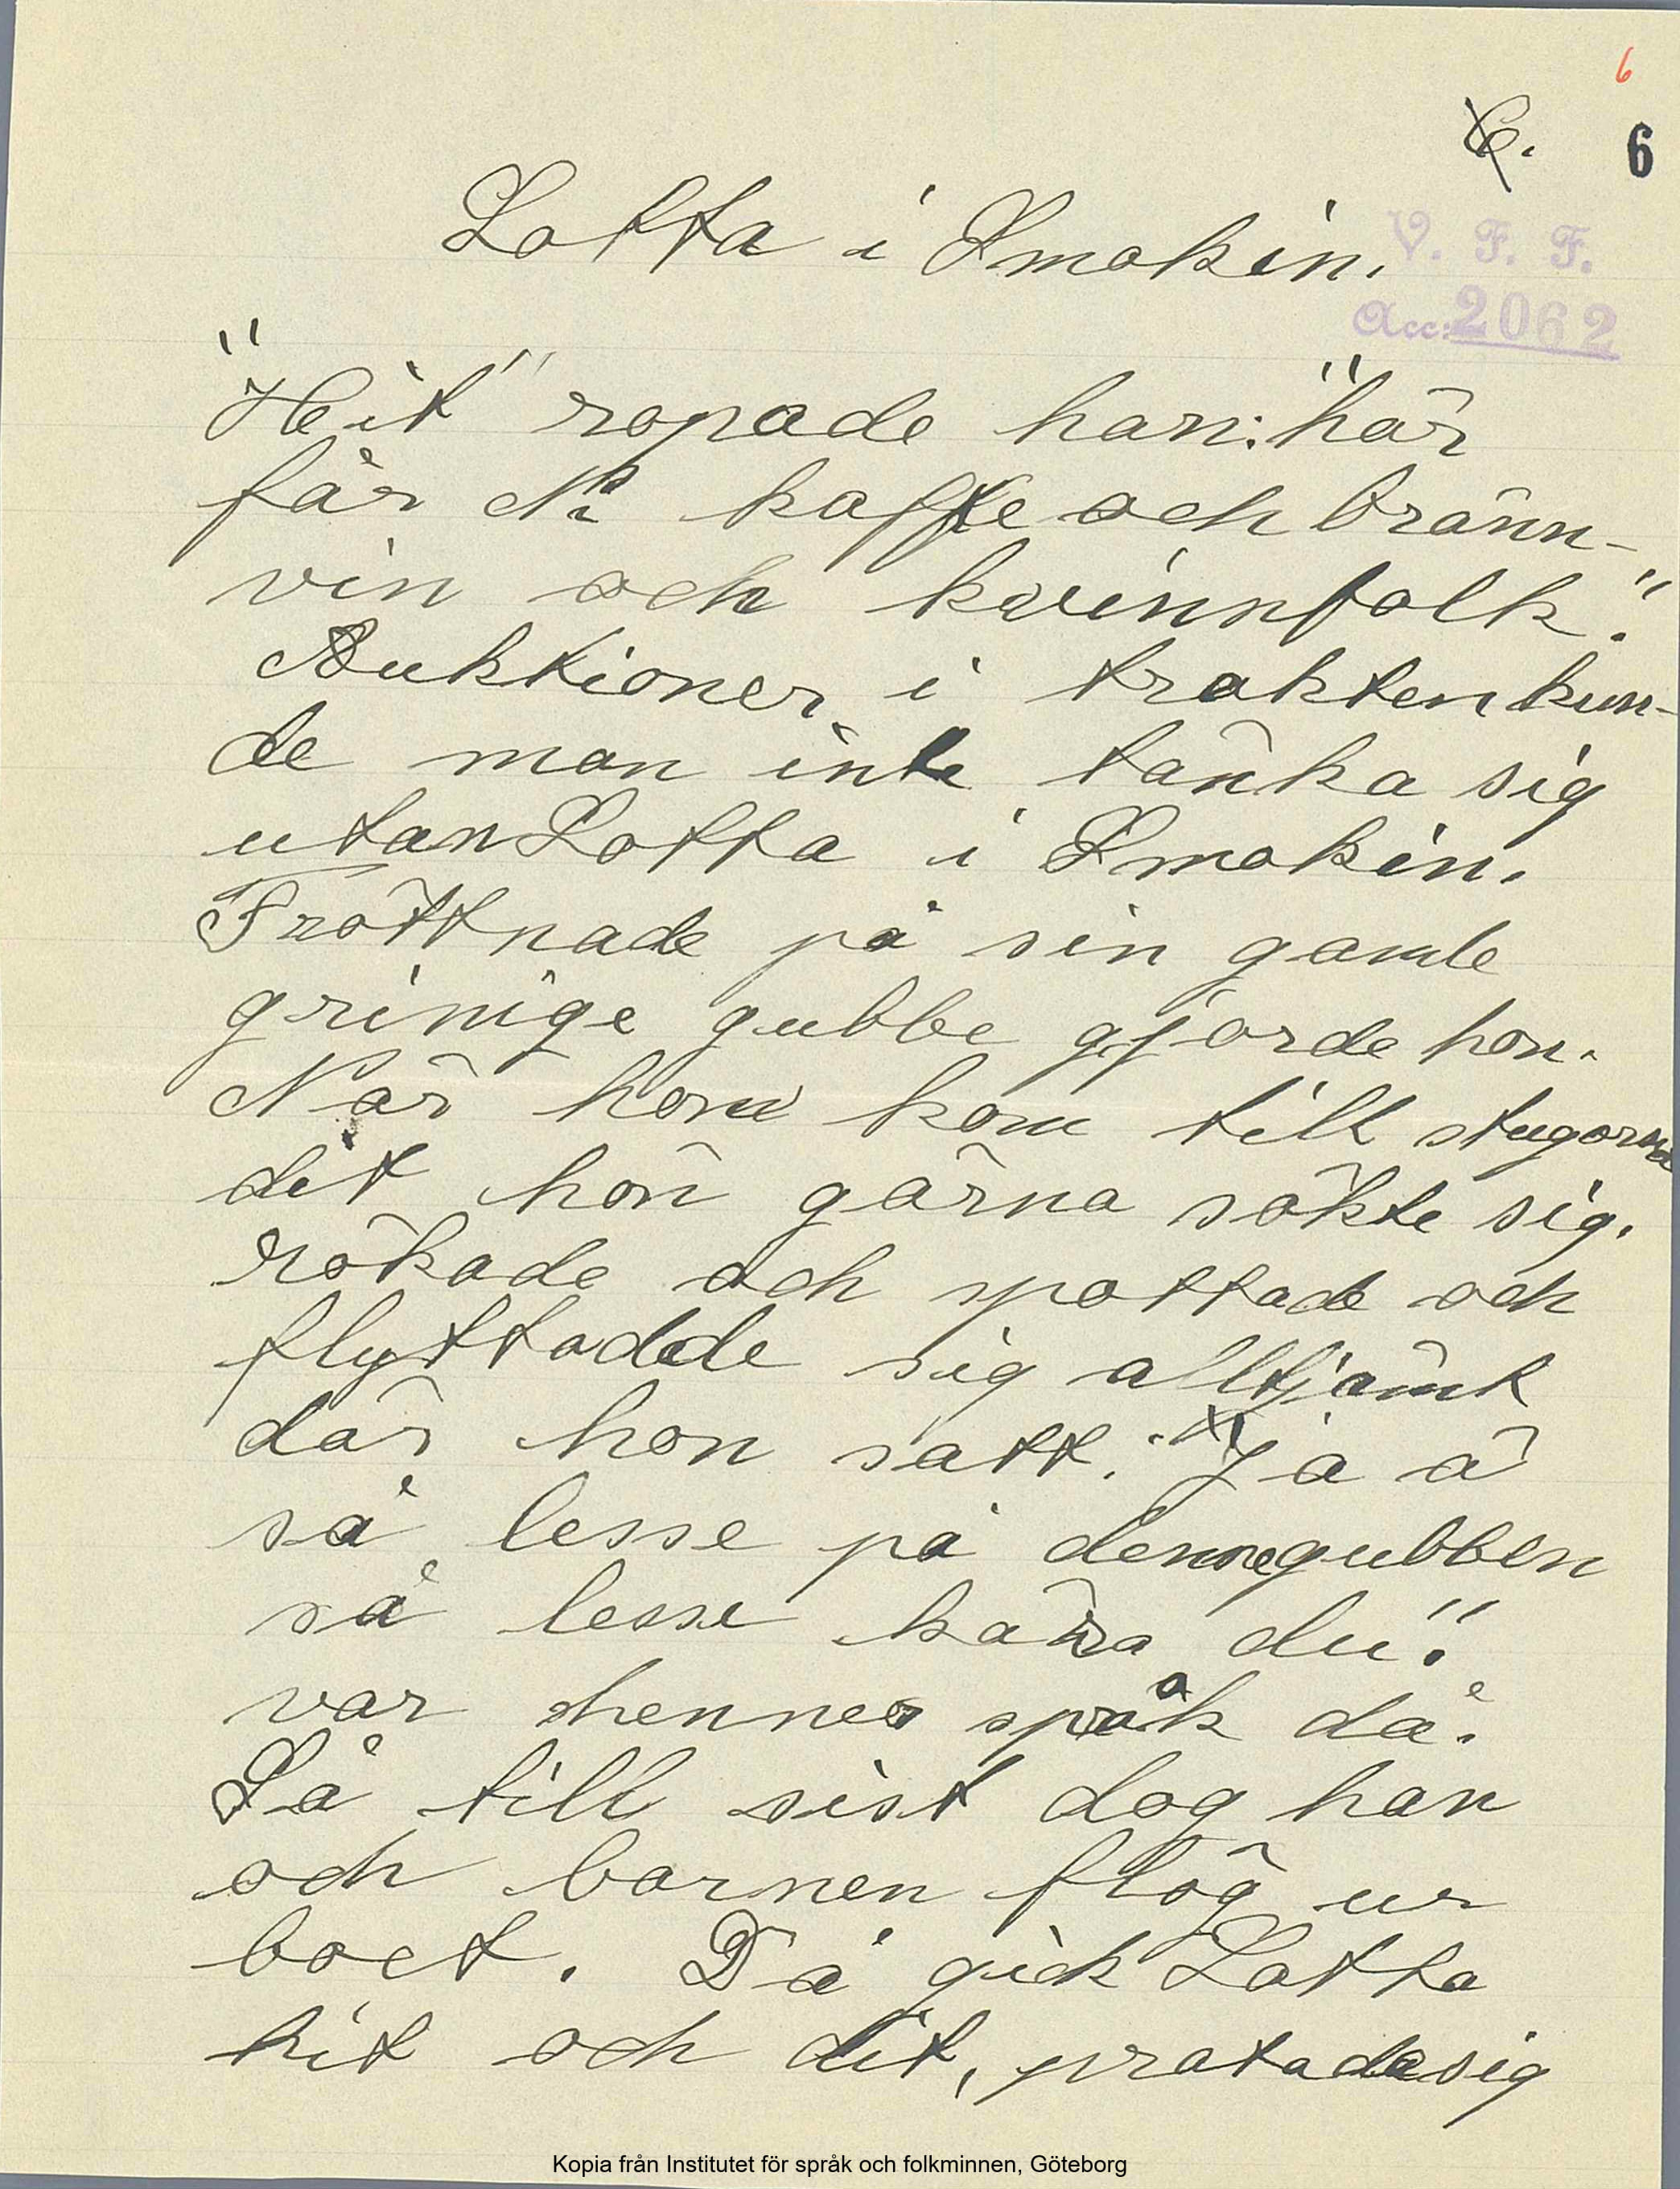 6
6. 6
Lotta i Smokin.
V. F. F.
Acc: 2062
"Hit" ropade han: "här
får Ni kaffe och bränn-
vin och kvinnfolk".
Auktioner i trakten kun-
de man inte tänka sig
utan Lotta i Smokin.
Tröttnade på sin gamle
grinige gubbe gjorde hon.
När hon kom till stugorna
dit hon gärna sökte sig.
rökade och spottade och
flyttade sig alltjämt
där hon satt. "Ja ä
så lesse på denne gubben
så lesse kära du".
var hennes språk då.
Så till sist dog han
och barnen flög ur
boet. Då gick Lotta
hit och dit, pratade sig
Kopia från Institutet för språk och folkminnen, Göteborg